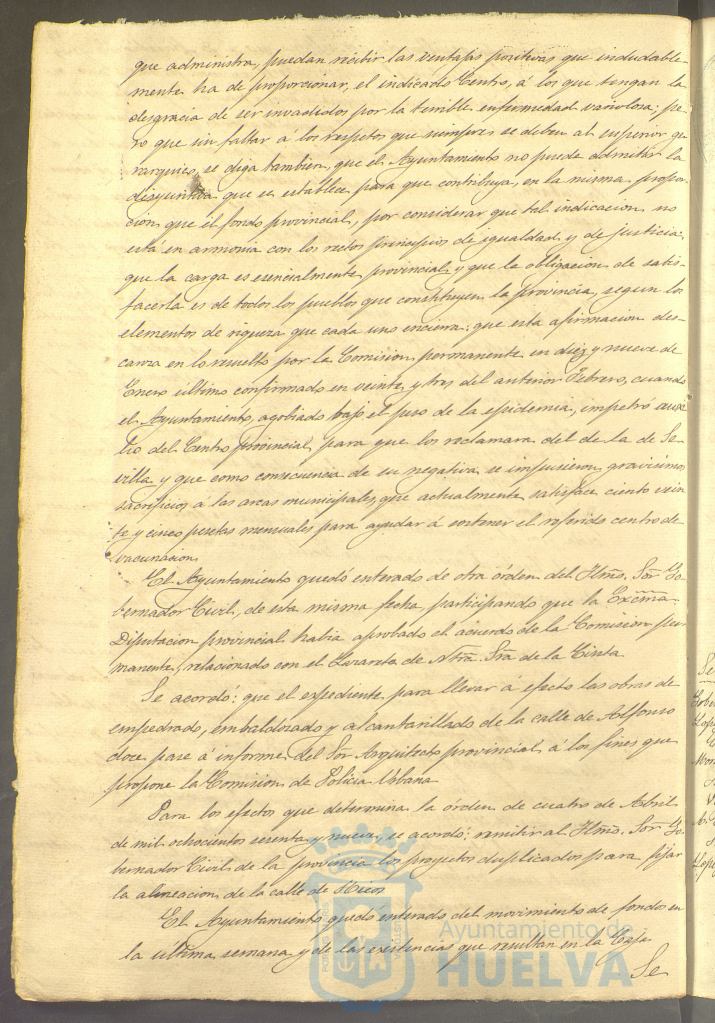 que administra, puedan recibir las ventajas positivas que indudable-
mente ha de proporcionar, el indicado Centro, á los que tengan la
desgracia de ser invadidos por la terrible enfermedad variolosa; pe-
ro que sin faltar á los respetos que siempre se deben al superior ge-
rarquico, se diga tambien, que el Ayuntamiento no puede admitir la
disyuntiva que se establece para que contribuya, en la misma propor-
cion que el fondo provincial, por considerar que tal indicacion no
está en armonía con los rectos principios de igualdad y de justicia;
que la carga es esencialmente provincial y que la obligacion de satis-
facerla es de todos los pueblos que constituyen la provincia, segun los
elementos de riqueza que cada uno encierra: que esta afirmacion des-
canza en lo resuelto por la Comision permanente en diez y nueve de
Enero último confirmado en veinte y tres del anterior Febrero, cuando
el Ayuntamiento, agobiado bajo el peso de la epidemia, impetró auxi-
lio del Centro provincial, para que los reclamara del de la de Se-
villa y que como consecuencia de su negativa, se impusieron gravisimos
sacrificios á las arcas municipales, que actualmente satisface ciento vein-
te y cinco pesetas mensuales para ayudar á sostener el referido centro de
vacunacion.
El Ayuntamiento quedó enterado de otra órden del Iltmo. Sor. Go-
bernador Civil, de esta misma fecha, participando que la Excma.
Diputacion provincial habia aprobado el acuerdo de la Comision per-
manente, relacionado con el Lazareto de Ntra. Sra. de la Cinta.
Se acordó: que el expediente para llevar á efecto las obras de
empedrado, embaldosado y alcantarillado de la calle de Alfonso
doce pase á informe del Sor. Arquitecto provincial á los fines que
propone la Comision de Policia Urbana.
Para los efectos que determina la órden de cuatro de Abril
de mil ochocientos sesenta y nueve, se acordó: remitir al Iltmo. Sor. Go-
bernador Civil de la provincia los proyectos duplicados para fijar
la alineacion de la calle de
El Ayuntamiento quedó enterado del movimiento de fondos en
la última semana y de las existencias que resultan en la Caja.
Se
Ayuntamiento de
HUELVA